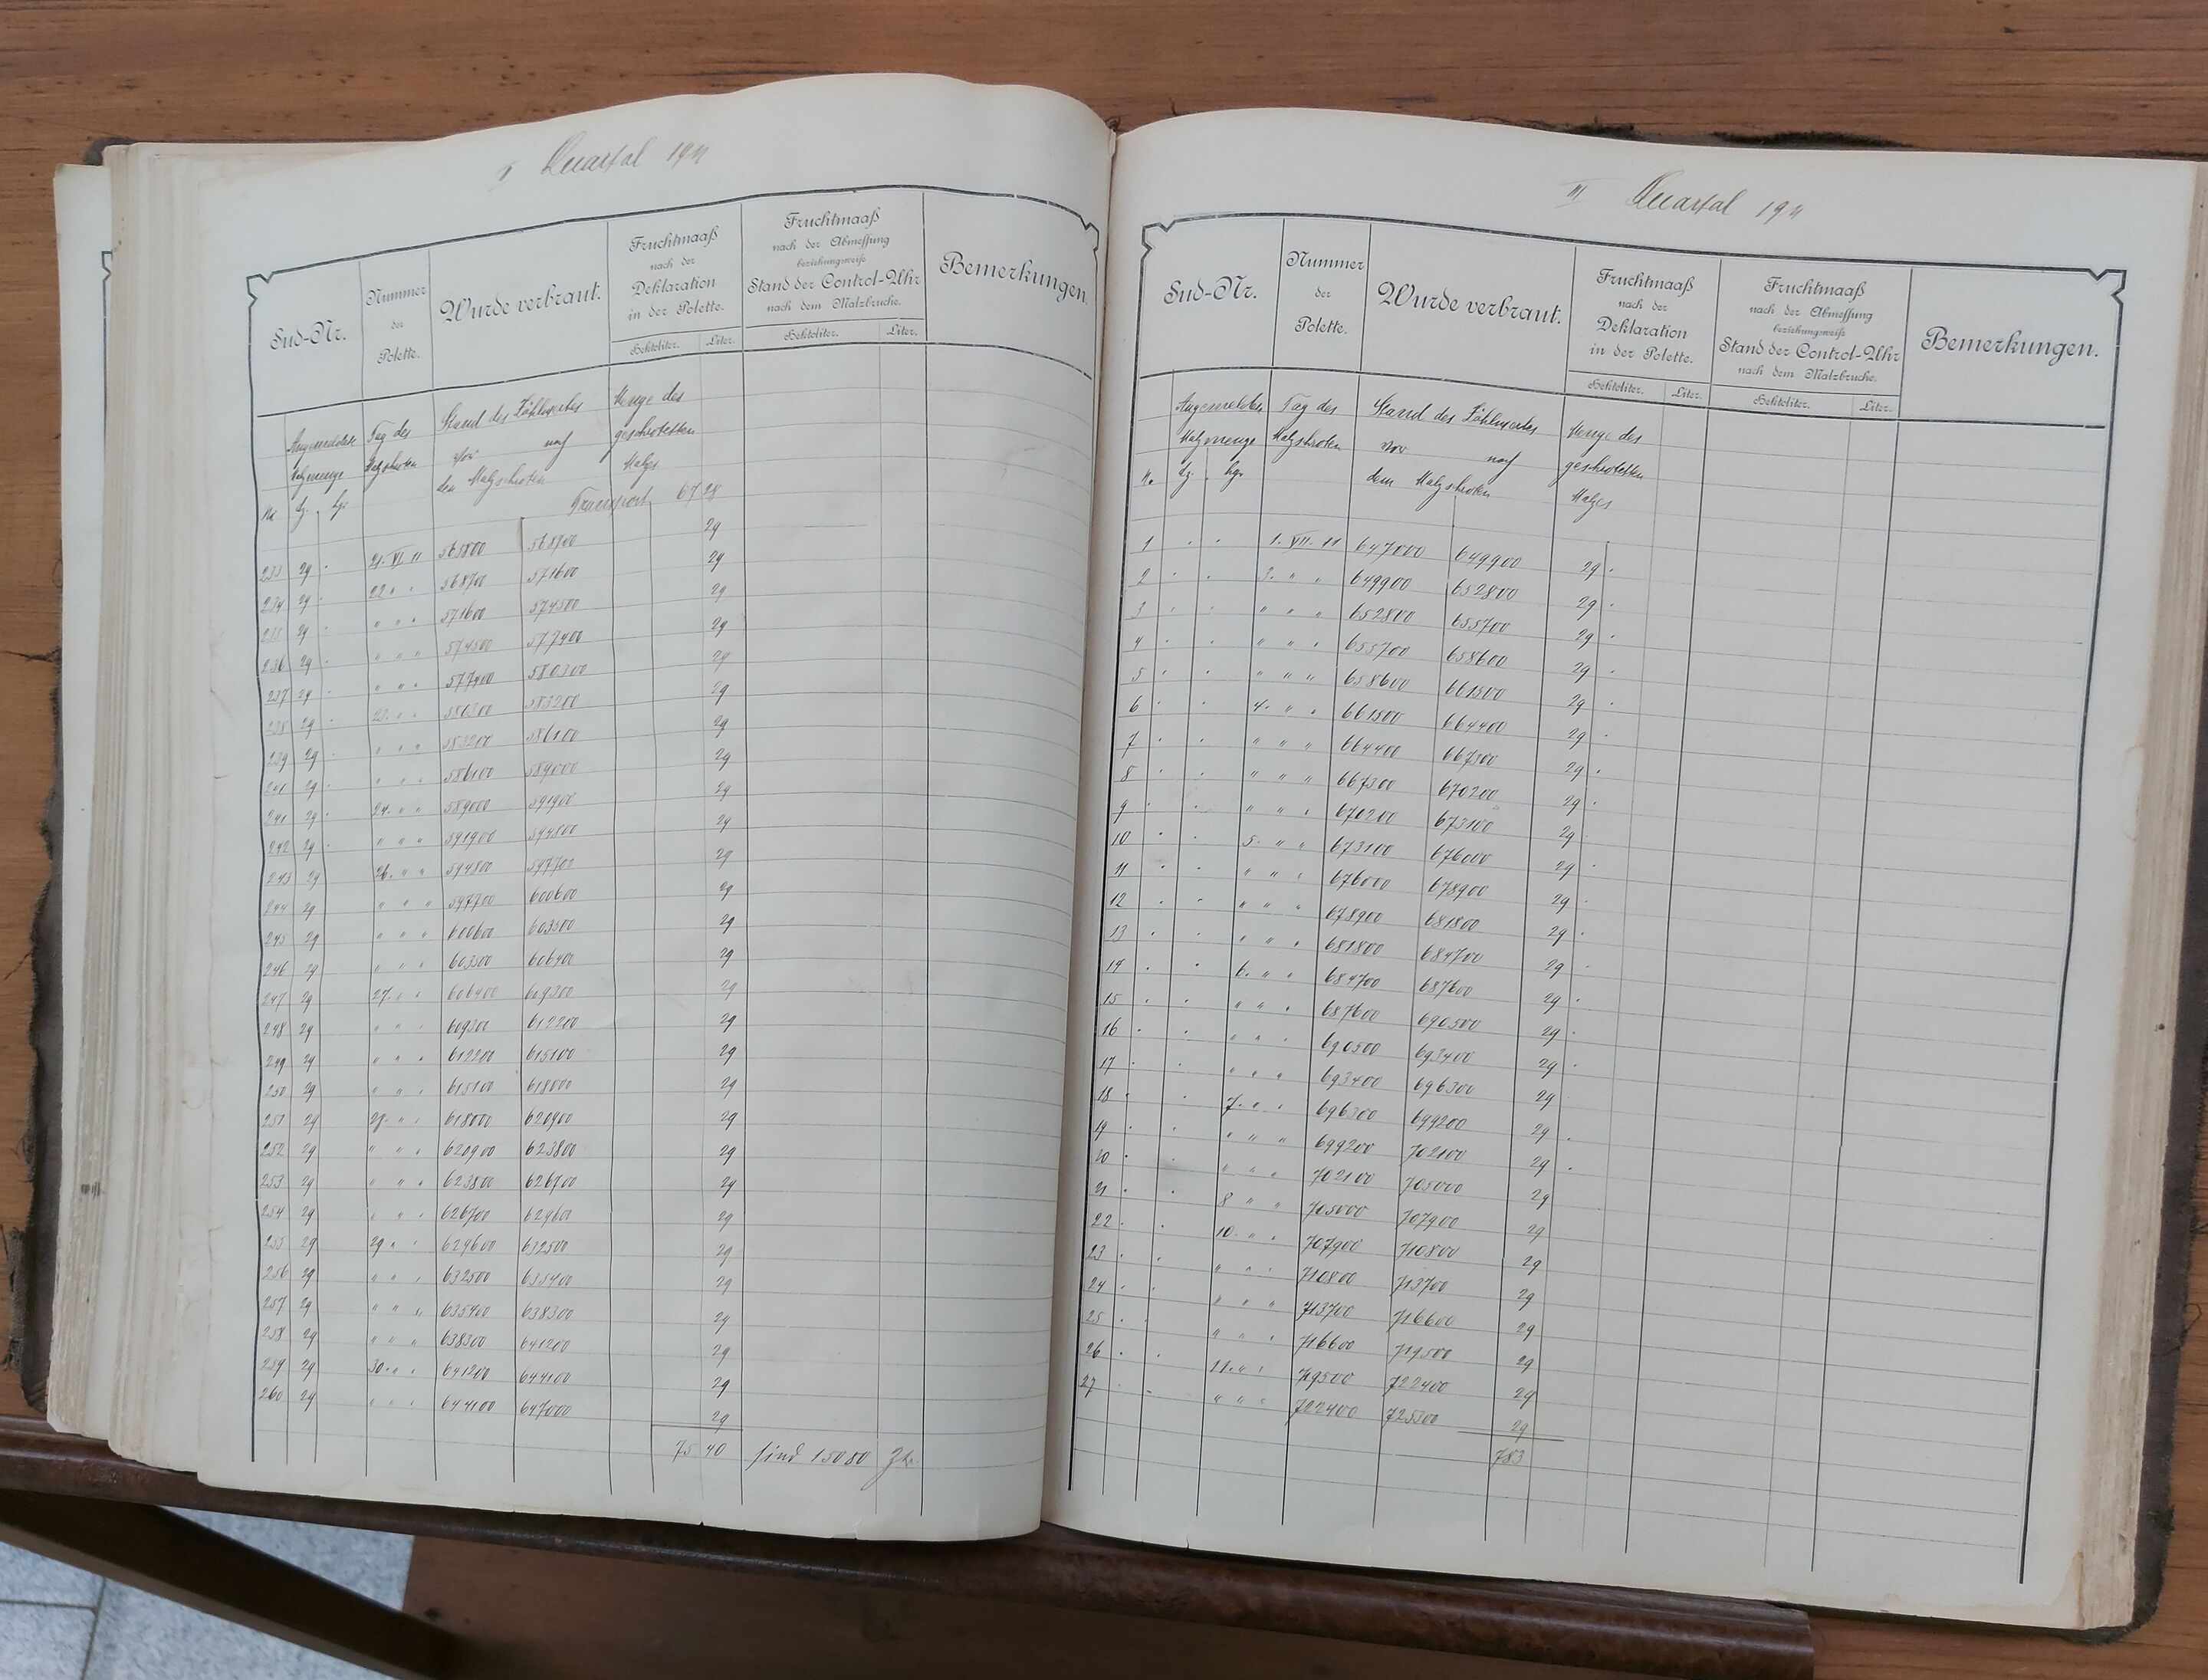 Quartal 1911
Sud-Nr.
Nummer
der
Polette.
Wurde verbraut.
Fruchtmaaß
nach der
Deklaration
in der Polette.
Hektoliter. Liter.
Fruchtmaaß
nach der Abmessung
beziehungsweise
Stand der Control-Uhr
nach dem Malzbruche.
Hektoliter. Liter.
Bemerkungen.
Angemeldete Tag des Stand des Zählwerkes Menge des
Malzmenge Malzschroten vor nach geschroteten
dem Malzschroten Malzes
No dz. kg.
Transport 67 28
233 29 21. VI 11 565800 568700 29
234 29 22. " " 568700 571600 29
235 29 " " " 571600 574500 29
236 29 " " " 574500 577400 29
237 29 " " " 577400 580300 29
238 29 23. " " 580300 583200 29
239 29 " " " 583200 586100 29
29 " " " 586100 589000 29
241 29 24. " " 589000 591900 29
242 29 " " " 591900 594800 29
243 29 26. " " 594800 597700 29
244 29 " " " 597700 600600 29
245 29 " " " 600600 603500 29
246 29 " " " 603500 606400 29
247 29 27. " " 606400 609300 29
248 29 " " " 609300 612200 29
249 29 " " " 612200 615100 29
250 29 " " " 615100 618000 29
251 29 " " 618000 620900 29
252 29 " " " 620900 623800 29
253 29 " " " 623800 626700 29
254 29 " " " 626700 629600 29
255 29 29 " " 629600 632500 29
256 29 " " " 632500 635400 29
257 29 " " " 635400 638300 29
258 29 " " " 638300 641200 29
259 29 30. " " 641200 644100 29
260 29 " " " 644100 647000 29
75 40 sind 15080
III Quartal 1911
Sud-Nr.
Nummer
der
Polette.
Wurde verbraut.
Fruchtmaaß
nach der
Deklaration
in der Polette.
Hektoliter. Liter.
Fruchtmaaß
nach der Abmessung
beziehungsweise
Stand der Control-Uhr
nach dem Malzbruche.
Hektoliter. Liter.
Bemerkungen.
Angemeldete Tag des Stand des Zählwerkes Menge des
Malzmenge Malzschroten vor nach geschroteten
No. dz. kg. dem Malzschroten Malzes
1 1. VII. 11 647000 649900 29
2 3. " " 649900 652800 29
3 " " " 652800 655700 29
4 " " " 655700 658600 29
5 " " " 658600 661500 29
6 4. " " 661500 664400 29
7 " " " 664400 667300 29
8 " " " 667300 670200 29
9 " " " 670200 673100 29
10 5. " " 673100 676000 29
11 " " " 676000 678900 29
12 " " " 678900 681800 29
13 " " " 681800 684700 29
14 6. " " 684700 687600 29
15 " " " 687600 690500 29
16 " " " 690500 693400 29
17 " " " 693400 696300 29
18 7. " " 696300 699200 29
19 " " " 699200 702100 29
20 " " " 702100 705000 29
21 8 " " 705000 707900 29
22 10. " " 707900 710800 29
23 " " " 710800 713700 29
24 " " " 713700 716600 29
25 " " " 716600 719500 29
26 11. " " 719500 722400 29
27 " " " 722400 725300 29
783